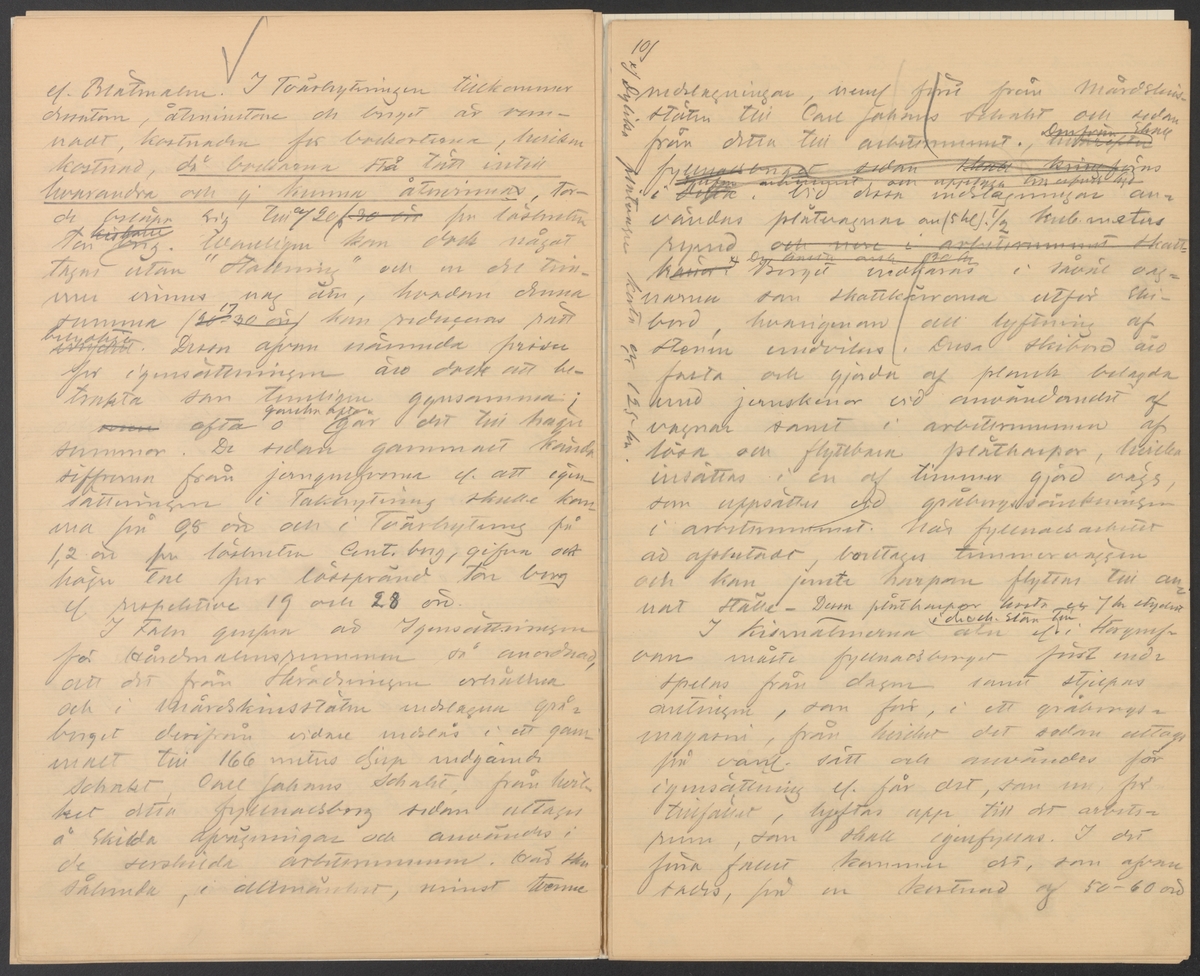 ef. Blåtmalm. I Tvärbrytningen tillkommer
dessutom, åtminstone då berget är som-
nadt, kostnaden för bockortarna, hvilken
kostnad, då bockarna stå tätt intill
hvarandra och ej kunna återvinnas, tor-
de belöpa sig till 17 á 20 (30 öre) för lösbruten
ton berg. Vanligen kan dock något
tagas utan "Stallning" och en del tim-
mer vinnas nog åter, hvadan denna
summa (20-30 öre) kan reduceras rätt
betydligt. Dessa ofvan nämnda priser
för igensättningen äro dock att be-
trakta som temligen gynsamma;
ofta ganska ofta går det till högre
summor. De sedan gammalt kända
siffrorna från jerngrufvorna ef. att igen-
sättningen i Takbrytning skulle kom-
ma på 0,8 öre och i Tvärbrytning på
1,2 öre per lösbruten Cent. berg, gifva ock
högre tal per lössprängd ton berg
ef. respektive 19 och 28 öre.
I Falu grufva är Igensättningen
för Hårdmalmsrummen så anordnad,
att det från Skrädningen erhållna
och i Mårdskinsstöten nedslagna grå-
berget derifrån vidare nedslås i ett gam-
malt till 166 meters djup nedgående
schakt, Carl Johans Schakt, från hvil-
ket detta fyllnadsberg sedan uttages
å skilda afvägningar och användes i
de serskilda arbetsrummen. Här ske
sålunda, i allmänhet, minst tvenne
10)
x) Dylika plåtvagnar kosta ca 125 kr.
nedslagningar, neml först från Mårdskins-
stöten till Carl Johans Schakt och sedan
från detta till arbetsrummet.
Vid dessa nedslagningar an-
vändas plåtvagnar om (5 hl). 1/2 kub.meters
rymd och nere i arbetsrummet skatt-
kärror x Berget nedköras i såväl vag-
narna som skattkärrorna utför Ski-
bord, hvarigenom all lyftning af
stenen undvikes. Dessa skibord äro
fasta och gjorda af plank belagda
med jernskenor vid användandet af
vagnar samt i arbetsrummen af
lösa och flyttbara plåtharpor, hvilka
insättas i en af timmer gjord vägg,
som uppsättes vid gråbergssänkningen
i arbetsrummet. När fyllnadsarbetet
är afslutadt, borttages timmerväggen
och kan jemte harpan flyttas till an-
nat ställe – Dessa plåtharpor kosta ca 7 kr stycket
I Kismalmerna i Storgruf-
van måste fyllnadsberget först ned-
spelas från dagen samt stjelpas
antingen, som förr, i ett gråbergs-
magasin, från hvilket det sedan uttages
på vanl. sätt och användes för
igensättning ef. får det, som nu för
tillfället, lyftas upp till det arbets-
rum, som skall igenfyllas. I det
förra fallet kommer det, som ofvan
sades, på en kostnad af 50–60 öre